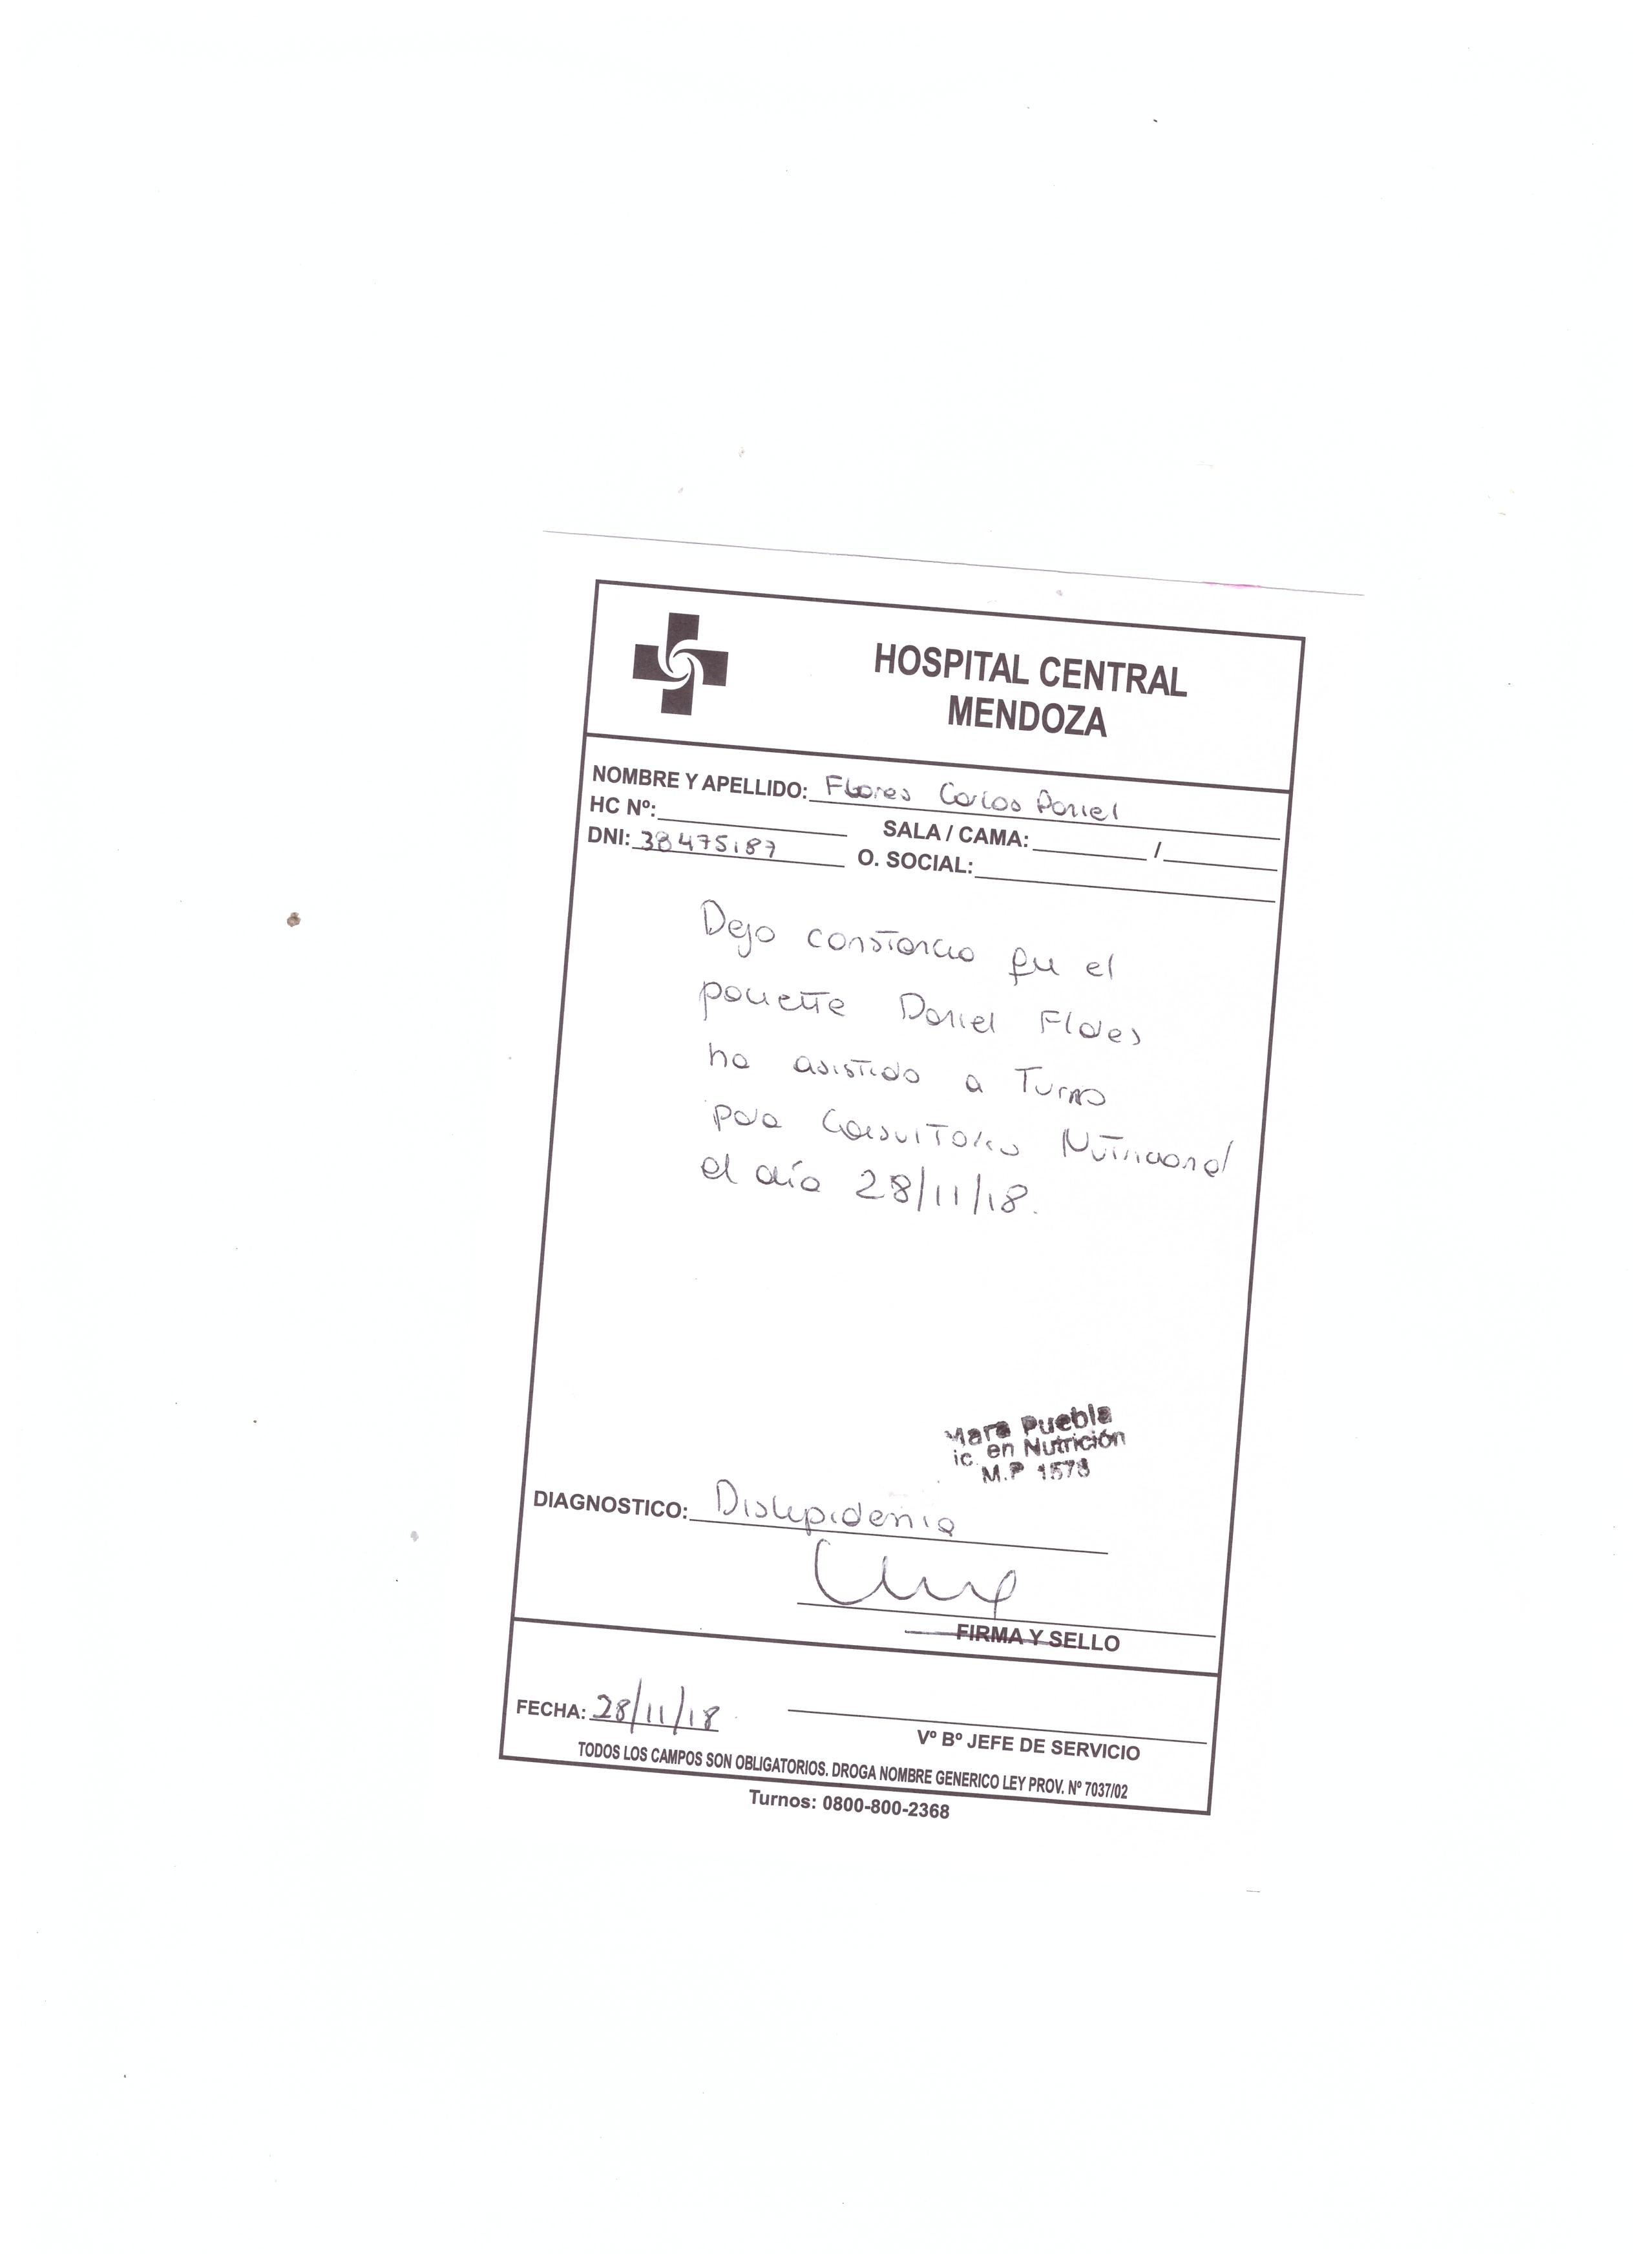 HOSPITAL CENTRAL
MENDOZA
NOMBRE Y APELLIDO: Flores Carlos Daniel
HC Nº: SALA / CAMA: /
DNI: 38475187 O. SOCIAL:
Dejo constancia que el
paciente Daniel Flores
ha asistido a Turno
para Consultorio Nutricional
el día 28/11/18.
Mara Puebla
ic. en Nutrición
M.P 1578
DIAGNOSTICO: Dislipidemia
FIRMA Y SELLO
FECHA: 28/11/18
Vº Bº JEFE DE SERVICIO
TODOS LOS CAMPOS SON OBLIGATORIOS. DROGA NOMBRE GENERICO LEY PROV. Nº 7037/02
Turnos: 0800-800-2368